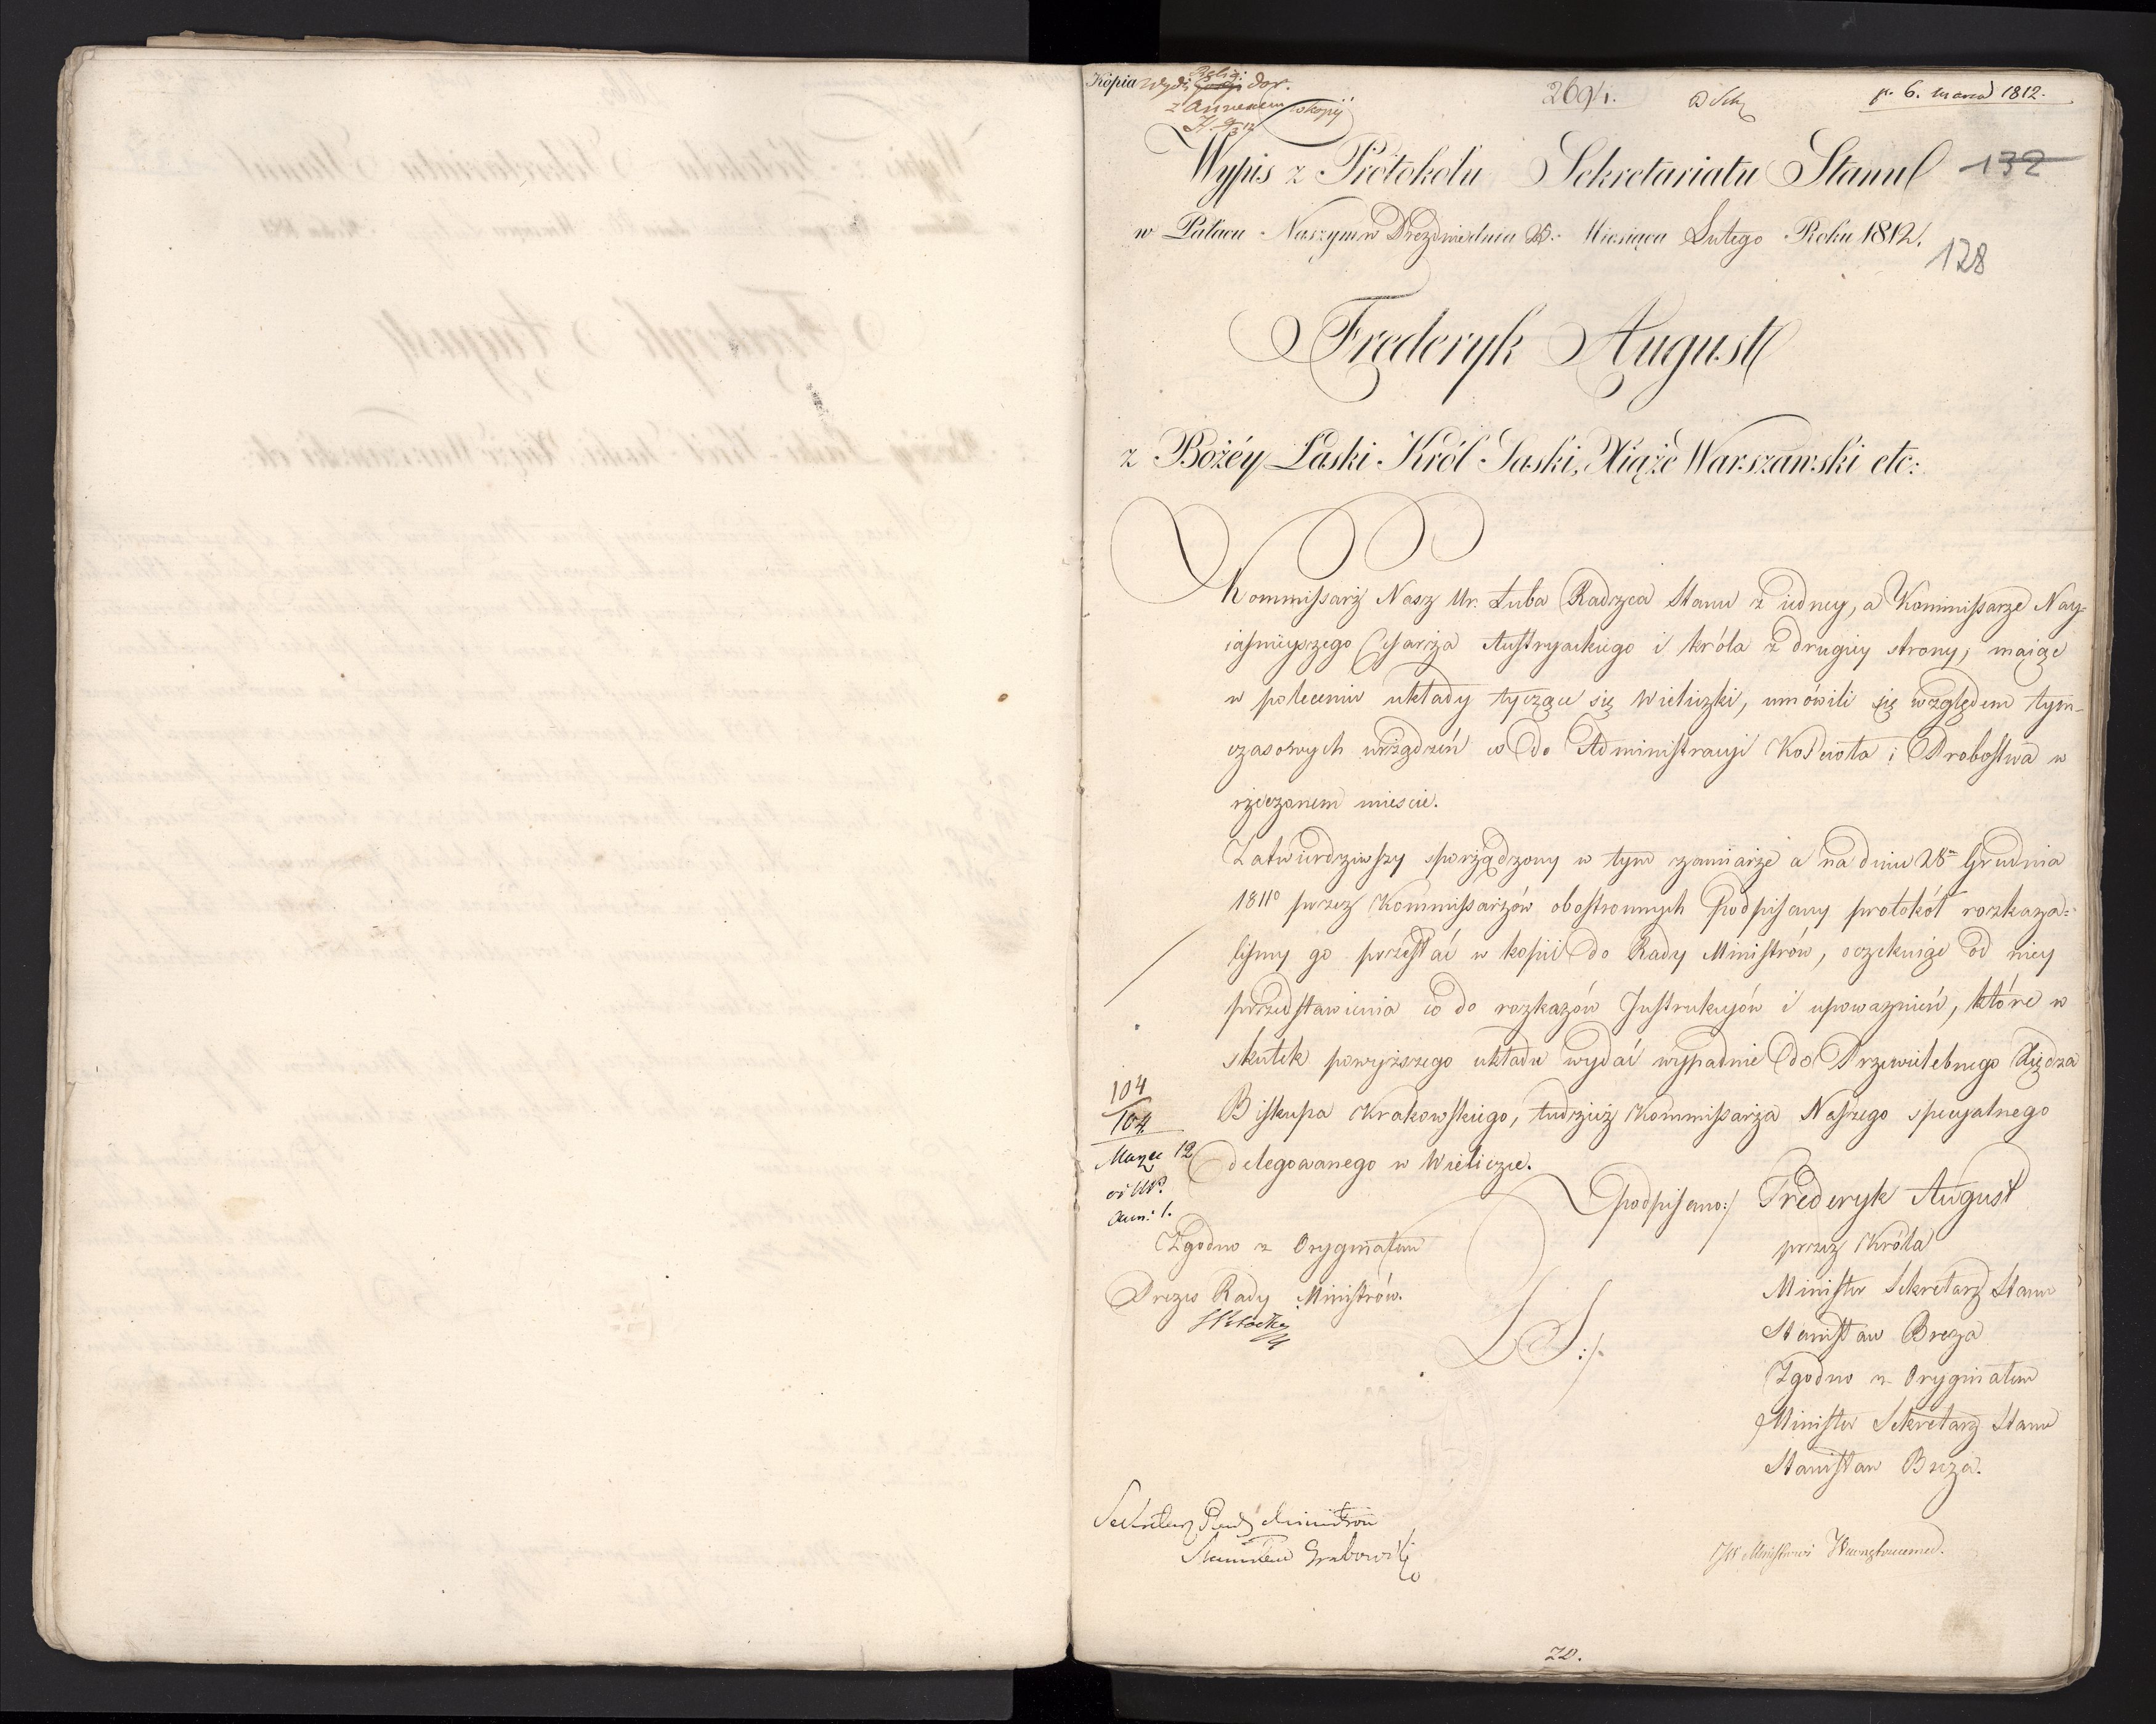 Kopia
z Annexem w kopij
p. 6. marca 1812.
Wypis z Protokołu Sekretariatu Stanu
132
w Pałacu Naszym w Dreznie dnia 25. Miesiąca Lutego Roku 1812.
128
Frederyk August
z Bożéy Łaski Król Saski, Xiąże Warszawski etc:
Kommissarz Nasz Ur. Łuba Radzca Stanu z iedney, a Kommissarze Nay-
iaśnieyszego Cesarza Austryackiego i króla z drugiey strony, maiąc
w poleceniu układy tyczące się Wieliczki, umówili się względem tym-
czasowych urządzeń co do Administracyi Kościoła i Probostwa w
rzeczonem mieście.
Zatwierdziwszy sporządzony w tym zamiarze a na dniu 28m Grudnia
1811o przez Kommissarzów obostronnych podpisany protokół rozkaza-
liśmy go przesłać w kopii do Rady Ministrów, oczekuiąc od niey
przedstawienia co do rozkazów Instrukcyów i upoważnień, które w
skutek powyższego układu wydać wypadnie do Przewielebnego Xiędza
Biskupa Krakowskiego, tudzież Kommissarza Naszego specyalnego
delegowanego w Wieliczce.
104
104
Marzec 12
ann: 1.
podpisano:/ Frederyk August
przez Króla
Minister Sekretarz Stanu
Stanisław Breza
Zgodno z Oryginałem
Minister Sekretarz Stanu
Stanisław Breza.
Zgodno z Oryginałem
Prezes Rady Ministrów.
L S:/
Sekretarz Rady Ministrów
Stanisław Grabowski
JW Ministrowi Wewnętrznemu.
20.